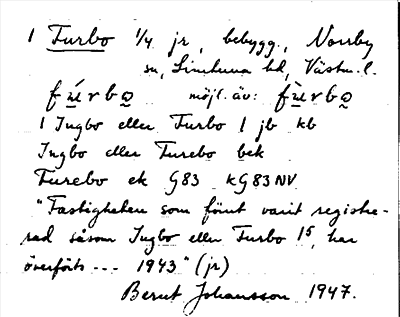 1 Turbo 1/4 jr, bebygg., Norrby
sn, Simtuna hd, Västm. l.
fú̱rbo̱ möjl. äv: fu̱̇rbo̱
1 Ingbo eller Turbo 1 jb kb
Ingbo eller Turebo bek
Turebo ek G83 kG83NV
"Fastigheten som förut varit registre-
rad såsom Ingbo eller Turbo 1⁵, har
överförts --- 1943" (jr)
Berut Johansson 1947.